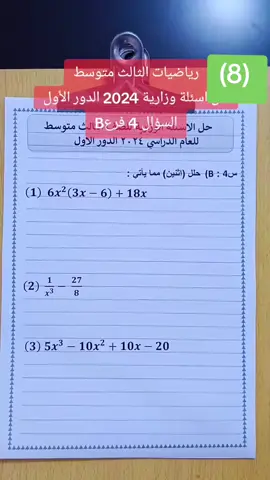 (8)
رياضيات الثالث متوسط
اسئلة وزارية 2024 الدور الأول
السؤال 4 فرعB
حل الاسئلة
متوسط
للعام الدراسي ٢٠٢٤ الدور الأول
س4 : B) حلل (اثنين) مما يأتي :
(1) 6x²(3x − 6) + 18x
(2) 1/x³ − 27/8
(3) 5x³ − 10x² + 10x − 20